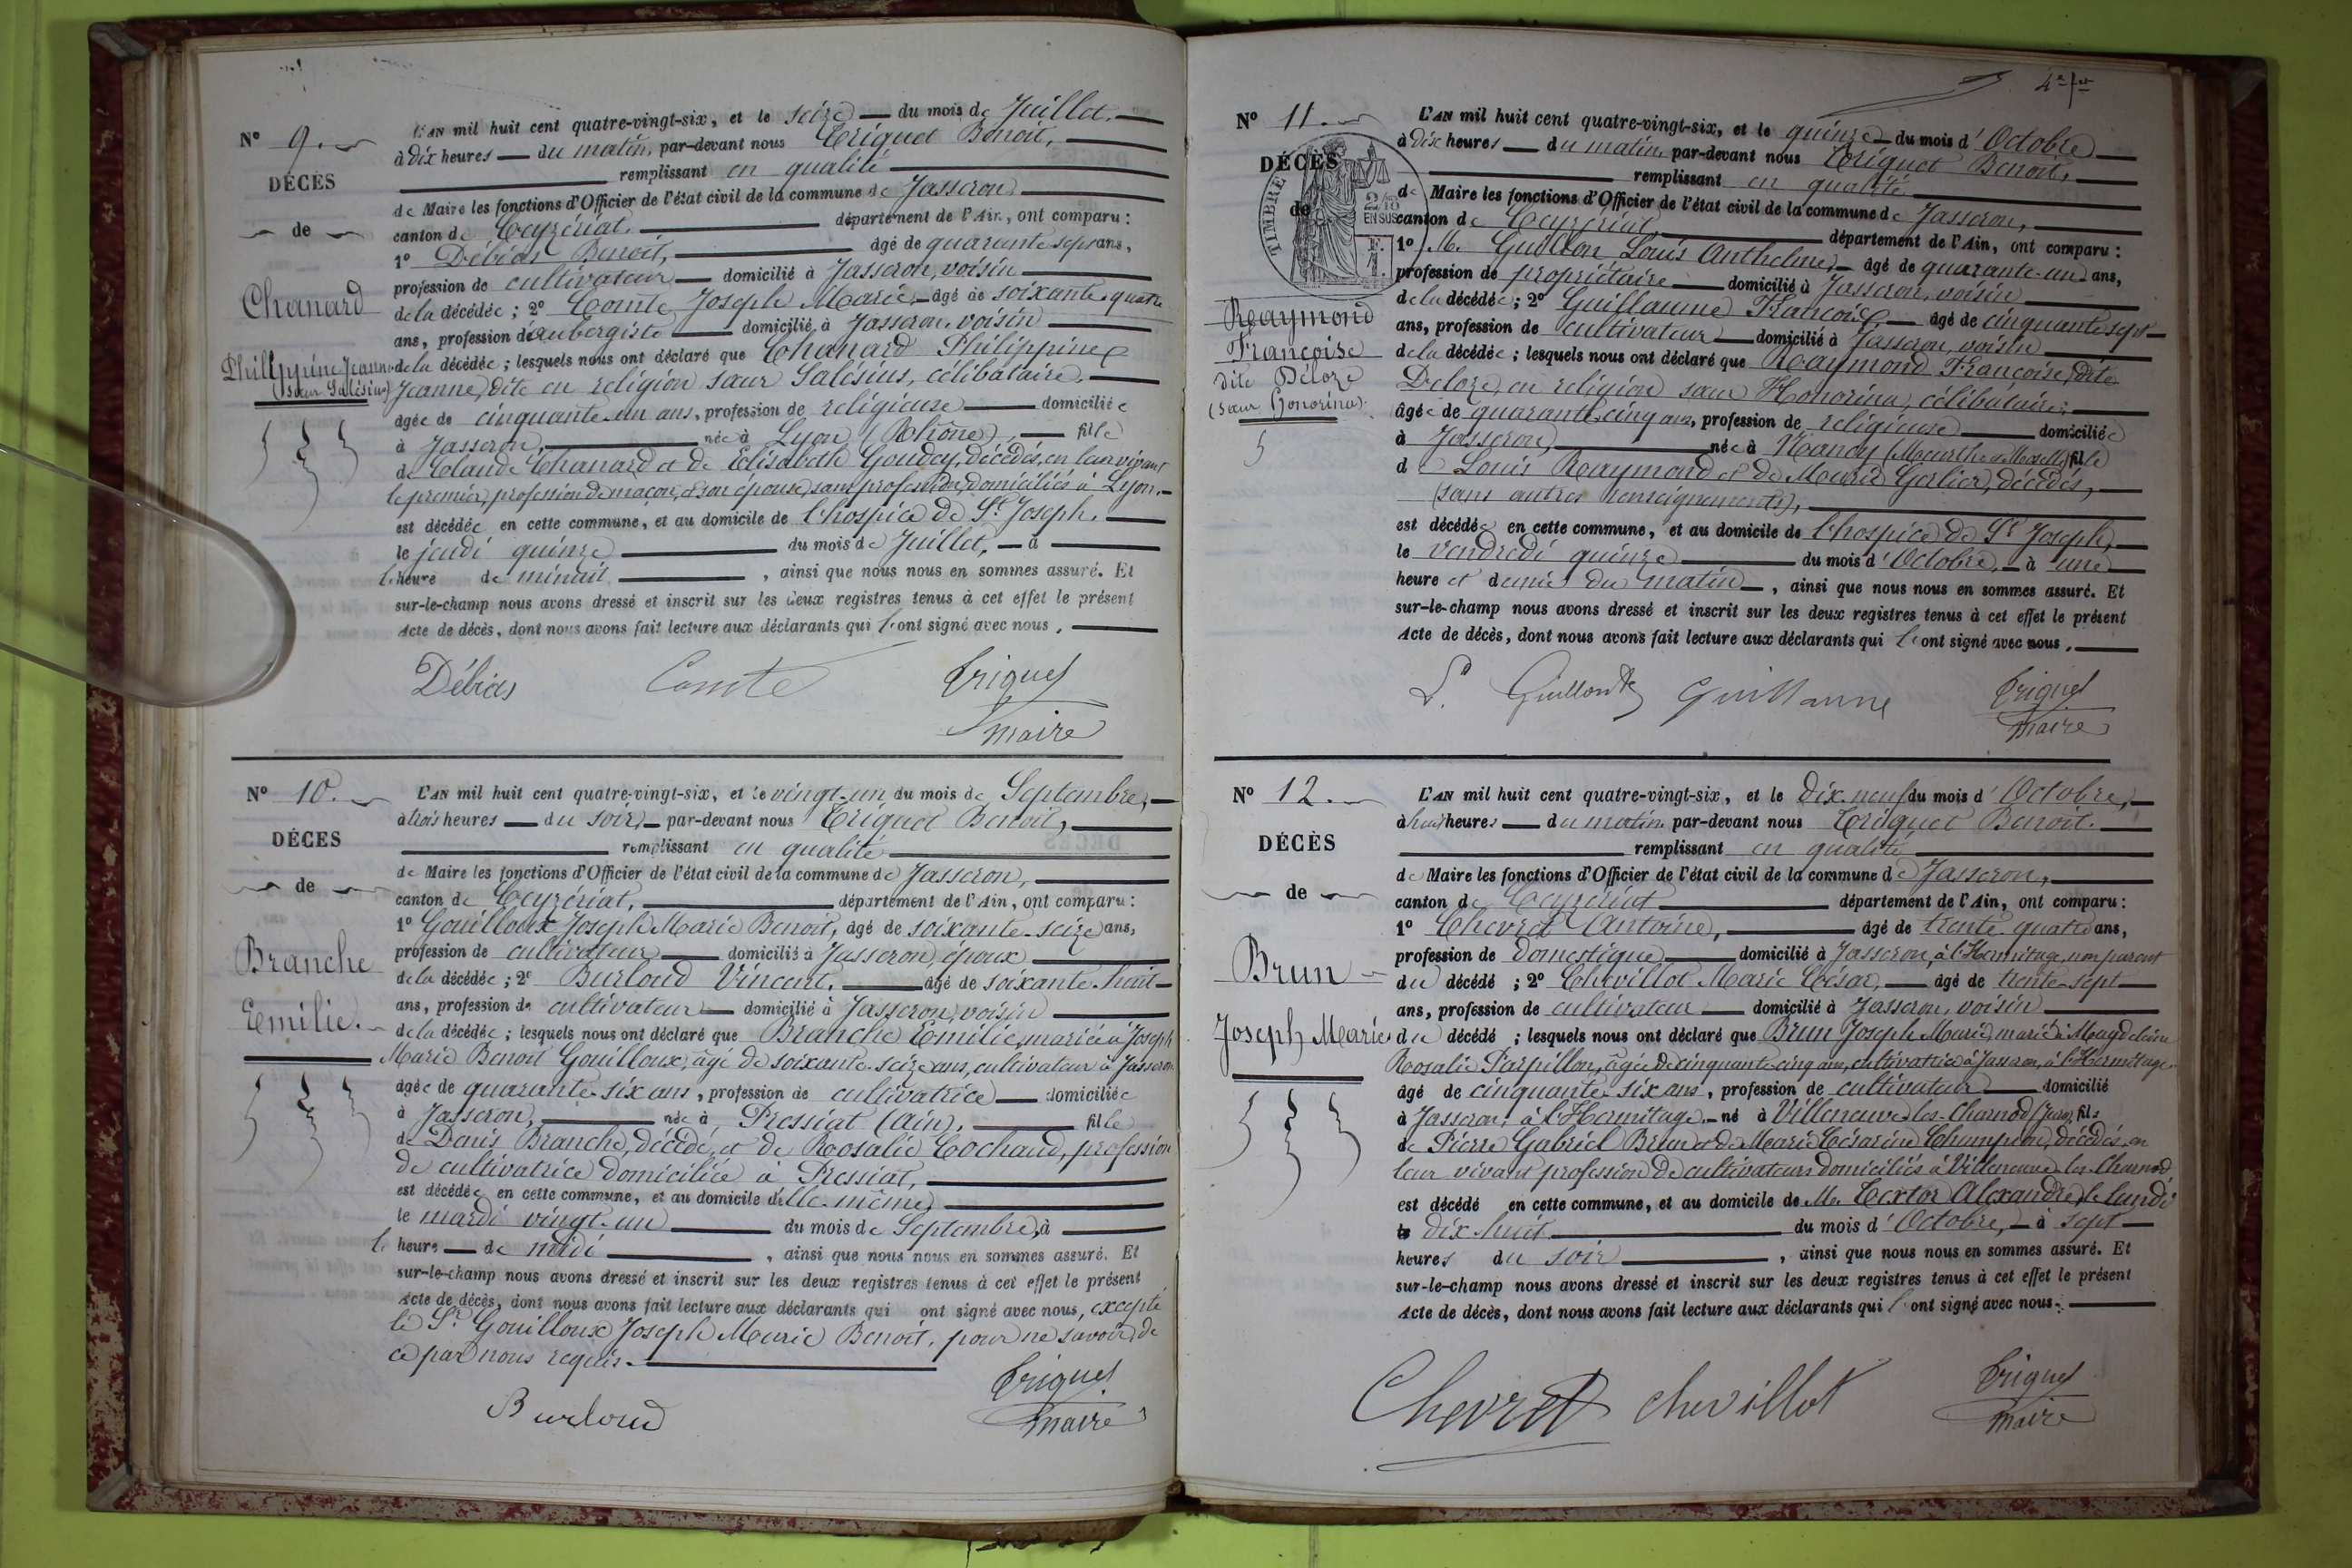 N° 9.
DÉCÈS
de
Chanard
Philippine Jeanne
(Sœur Salésius)
L'AN mil huit cent quatre-vingt-six, et le seize du mois de Juillet.
à dix heures du matin, par-devant nous Triquet Benoit,
remplissant en qualité
de Maire les fonctions d'Officier de l'état civil de la commune de Jasseron
canton de Ceyzériat, département de l'Ain, ont comparu :
1° Débias Benoit, âgé de quarante sept ans,
profession de cultivateur domicilié à Jasseron, voisin
de la décédée ; 2° Comte Joseph Marie, âgé de soixante-quatre
ans, profession d'aubergiste domicilié à Jasseron, voisin
de la décédée ; lesquels nous ont déclaré que Chanard Philippine
Jeanne, dite en religion sœur Salésius, célibataire,
âgée de cinquante-un ans, profession de religieuse domiciliée
à Jasseron, née à Lyon (Rhône), fille
de Claude Chanard et de Elisabeth Goudey, décédés, en leur vivant
le premier, profession de maçon, et son épouse, sans profession, domiciliés à Lyon,
est décédée en cette commune, et au domicile de l'hospice de St Joseph,
le jeudi quinze du mois de Juillet, à
l'heure de minuit, ainsi que nous nous en sommes assuré. Et
sur-le-champ nous avons dressé et inscrit sur les deux registres tenus à cet effet le présent
Acte de décès, dont nous avons fait lecture aux déclarants qui l'ont signé avec nous,
Débias Comte Triquet
maire
N° 10.
DÉCES
de
Branche
Emilie.
L'AN mil huit cent quatre-vingt-six, et le vingt-un du mois de Septembre,
à trois heures du soir, par-devant nous Triquet Benoit,
remplissant en qualité
de Maire les fonctions d'Officier de l'état civil de la commune de Jasseron,
canton de Ceyzériat, département de l'Ain, ont comparu :
1° Gouilloux Joseph Marie Benoit, âgé de soixante-seize ans,
profession de cultivateur domicilié à Jasseron, époux
de la décédée ; 2° Burloud Vincent, âgé de soixante-huit
ans, profession de cultivateur domicilié à Jasseron, voisin
de la décédée ; lesquels nous ont déclaré que Branche Emilie, mariée à Joseph
Marie Benoit Gouilloux, âgé de soixante-seize ans, cultivateur à Jasseron
âgée de quarante-six ans, profession de cultivatrice domiciliée
à Jasseron, née à Pressiat (Ain), fille
de Denis Branche, décédé, et de Rosalie Cochaud, profession
de cultivatrice domiciliée à Pressiat,
est décédée en cette commune, et au domicile d'elle-même
le mardi vingt-un du mois de Septembre, à
l'heure de midi, ainsi que nous nous en sommes assuré. Et
sur-le-champ nous avons dressé et inscrit sur les deux registres tenus à cet effet le présent
Acte de décès, dont nous avons fait lecture aux déclarants qui ont signé avec nous, excepté
le Sr Gouilloux Joseph Marie Benoit, pour ne savoir, de
ce par nous requis.
Burloud Triquet
maire
N° 11.
DÉCÈS
de
TIMBRE
2/10
EN SUS
Raymond
Françoise
dite Deloze
(sœur Honorina)
L'AN mil huit cent quatre-vingt-six, et le quinze du mois d'Octobre
à dix heures du matin par-devant nous Triquet Benoit,
remplissant en qualité
de Maire les fonctions d'Officier de l'état civil de la commune de Jasseron,
canton de Ceyzériat, département de l'Ain, ont comparu :
1° M. Guillon Louis Anthelme, âgé de quarante-un ans,
profession de propriétaire domicilié à Jasseron, voisin
de la décédée ; 2° Guillaume François, âgé de cinquante-sept
ans, profession de cultivateur domicilié à Jasseron, voisin
de la décédée ; lesquels nous ont déclaré que Raymond Françoise, dite
Deloze, en religion sœur Honorina, célibataire,
âgée de quarante-cinq ans, profession de religieuse domiciliée
à Jasseron, née à Nancy (Meurthe et Moselle) fille
de Louis Raymond et de Marie Gerlier, décédés,
(sans autres renseignements),
est décédée en cette commune, et au domicile de l'hospice de St Joseph,
le vendredi quinze du mois d'Octobre, à une
heure et demie du matin, ainsi que nous nous en sommes assuré. Et
sur-le-champ nous avons dressé et inscrit sur les deux registres tenus à cet effet le présent
Acte de décès, dont nous avons fait lecture aux déclarants qui l'ont signé avec nous,
Guillaume Triquet
maire
N° 12.
DÉCÈS
de
Brun
Joseph Marie
L'AN mil huit cent quatre-vingt-six, et le dix-neuf du mois d'Octobre,
à huit heures du matin par-devant nous Triquet Benoit.
remplissant en qualité
de Maire les fonctions d'Officier de l'état civil de la commune de Jasseron,
canton de Ceyzériat département de l'Ain, ont comparu :
1° Chevret Antoine, âgé de trente-quatre ans,
profession de domestique domicilié à Jasseron, à l'Hermitage, non parent
du décédé ; 2° Chevillot Marie César, âgé de trente-sept
ans, profession de cultivateur domicilié à Jasseron, voisin
du décédé ; lesquels nous ont déclaré que Brun Joseph Marie, marié à Magdeleine
Rosalie Parpillon, âgée de cinquante-cinq ans, cultivatrice à Jasseron, à l'Hermitage,
âgé de cinquante-six ans, profession de cultivateur domicilié
à Jasseron, à l'Hermitage, né à Villeneuve-les-Charnod (Jura) fils
de Pierre Gabriel Brun et de Marie Césarine Champion, décédés, en
leur vivant profession de cultivateurs domiciliés à Villeneuve-les-Charnod
est décédé en cette commune, et au domicile de M. Textor Alexandre, le lundi
le dix-huit du mois d'Octobre, à sept
heures du soir, ainsi que nous nous en sommes assuré. Et
sur-le-champ nous avons dressé et inscrit sur les deux registres tenus à cet effet le présent
Acte de décès, dont nous avons fait lecture aux déclarants qui l'ont signé avec nous.
Chevret chevillot Triquet
maire